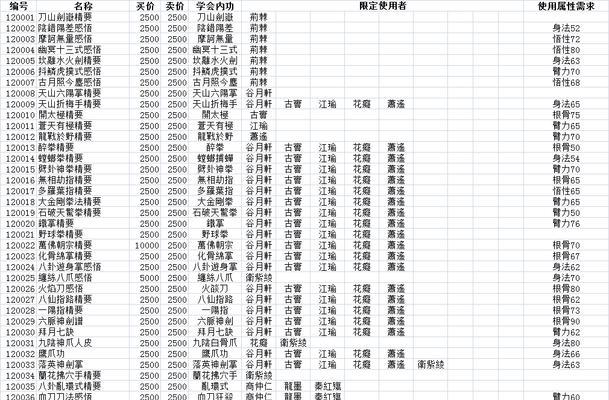 编号 名称 买价 卖价 学会内功 限定使用者 使用属性需求
120001 刀山劍嶽精要 2500 2500 刀山劍嶽 荊棘
120002 陰錯陽差感悟 2500 2500 陰錯陽差 荊棘 身法52
120003 摩訶無量感悟 2500 2500 摩訶無量 荊棘 悟性72
120004 幽冥十三式感悟 2500 2500 幽冥十三式 荊棘 悟性80
120005 坎離水火劍精要 2500 2500 坎離水火劍 荊棘 身法63
120006 抖鱗虎撲式感悟 2500 2500 抖鱗虎撲式 荊棘 臂力70
120007 古月照今塵感悟 2500 2500 古月照今塵 荊棘 悟性68
120008 天山六陽掌精要 2500 2500 天山六陽掌 谷月軒
120009 天山折梅手精要 2500 2500 天山折梅手 谷月軒 古實 江瑜 花癡 蕭遙 身法65
120010 開太極精要 2500 2500 開太極 古實 根骨75
120011 蒼天有極精要 2500 2500 蒼天有極 江瑜 臂力65
120012 龍戰於野精要 2500 2500 龍戰於野 蕭遙 臂力70
120013 醉拳精要 2500 2500 醉拳 谷月軒 古實 江瑜 花癡 蕭遙 根骨50
120014 螳螂拳精要 2500 2500 螳螂捕蟬 谷月軒 古實 江瑜 花癡 蕭遙 身法54
120015 劈卦神拳精要 2500 2500 劈卦神拳 谷月軒 古實 江瑜 花癡 蕭遙 臂力70
120016 無相劫指精要 2500 2500 無相劫指 谷月軒 古實 江瑜 花癡 蕭遙 根骨65
120017 多羅葉指精要 2500 2500 多羅葉指 谷月軒 古實 江瑜 花癡 蕭遙 悟性65
120018 大金剛拳法精要 2500 2500 大金剛拳 谷月軒 古實 江瑜 花癡 蕭遙 臂力65
120019 石破天驚拳精要 2500 2500 石破天驚拳 谷月軒 古實 江瑜 花癡 蕭遙 臂力50
120020 鐵掌精要 2500 2500 鐵掌 谷月軒 古實 江瑜 花癡 蕭遙 臂力76
120021 野球拳精要 2500 2500 野球拳 谷月軒 古實 江瑜 花癡 蕭遙
120022 萬佛朝宗精要 10000 2500 萬佛朝宗 谷月軒 古實 江瑜 花癡 蕭遙 根骨70
120023 化骨綿掌精要 2500 2500 化骨綿掌 谷月軒 古實 江瑜 花癡 蕭遙 根骨67
120024 八卦遊身掌感悟 2500 2500 八卦遊身掌 谷月軒 古實 江瑜 花癡 蕭遙 身法62
120025 纏絲八爪感悟 5000 2500 纏絲八爪 衛紫綾 身法70
120026 火焰刀感悟 2500 2500 火燄刀 谷月軒 古實 江瑜 花癡 蕭遙 根骨80
120027 八仙指路精要 2500 2500 八仙指路 谷月軒 古實 江瑜 花癡 蕭遙 根骨62
120028 一陽指精要 2500 2500 一陽指 谷月軒 古實 江瑜 花癡 蕭遙 根骨73
120029 六脈神劍譜 2500 2500 六脈神劍 谷月軒 古實 江瑜 花癡 蕭遙 根骨90
120030 拜月七訣 2500 2500 拜月七訣 谷月軒 古實 江瑜 花癡 蕭遙 臂力62
120031 九陰神爪人皮 2500 2500 九陰白骨爪 花癡 衛紫綾 身法80
120032 鷹爪功 2500 2500 鷹爪功 谷月軒 古實 江瑜 花癡 蕭遙 身法66
120033 落英神劍掌 2500 2500 落英神劍掌 谷月軒 古實 江瑜 花癡 蕭遙 衛紫綾 身法63
120034 蘭花拂穴手精要 2500 2500 蘭花拂穴手 衛紫綾
120035 八卦亂環式精要 2500 2500 亂環式 商仲仁 龍墨 秦紅殤
120036 血刀刀法感悟 2500 2500 血刀狂殺 商仲仁 龍墨 臂力60